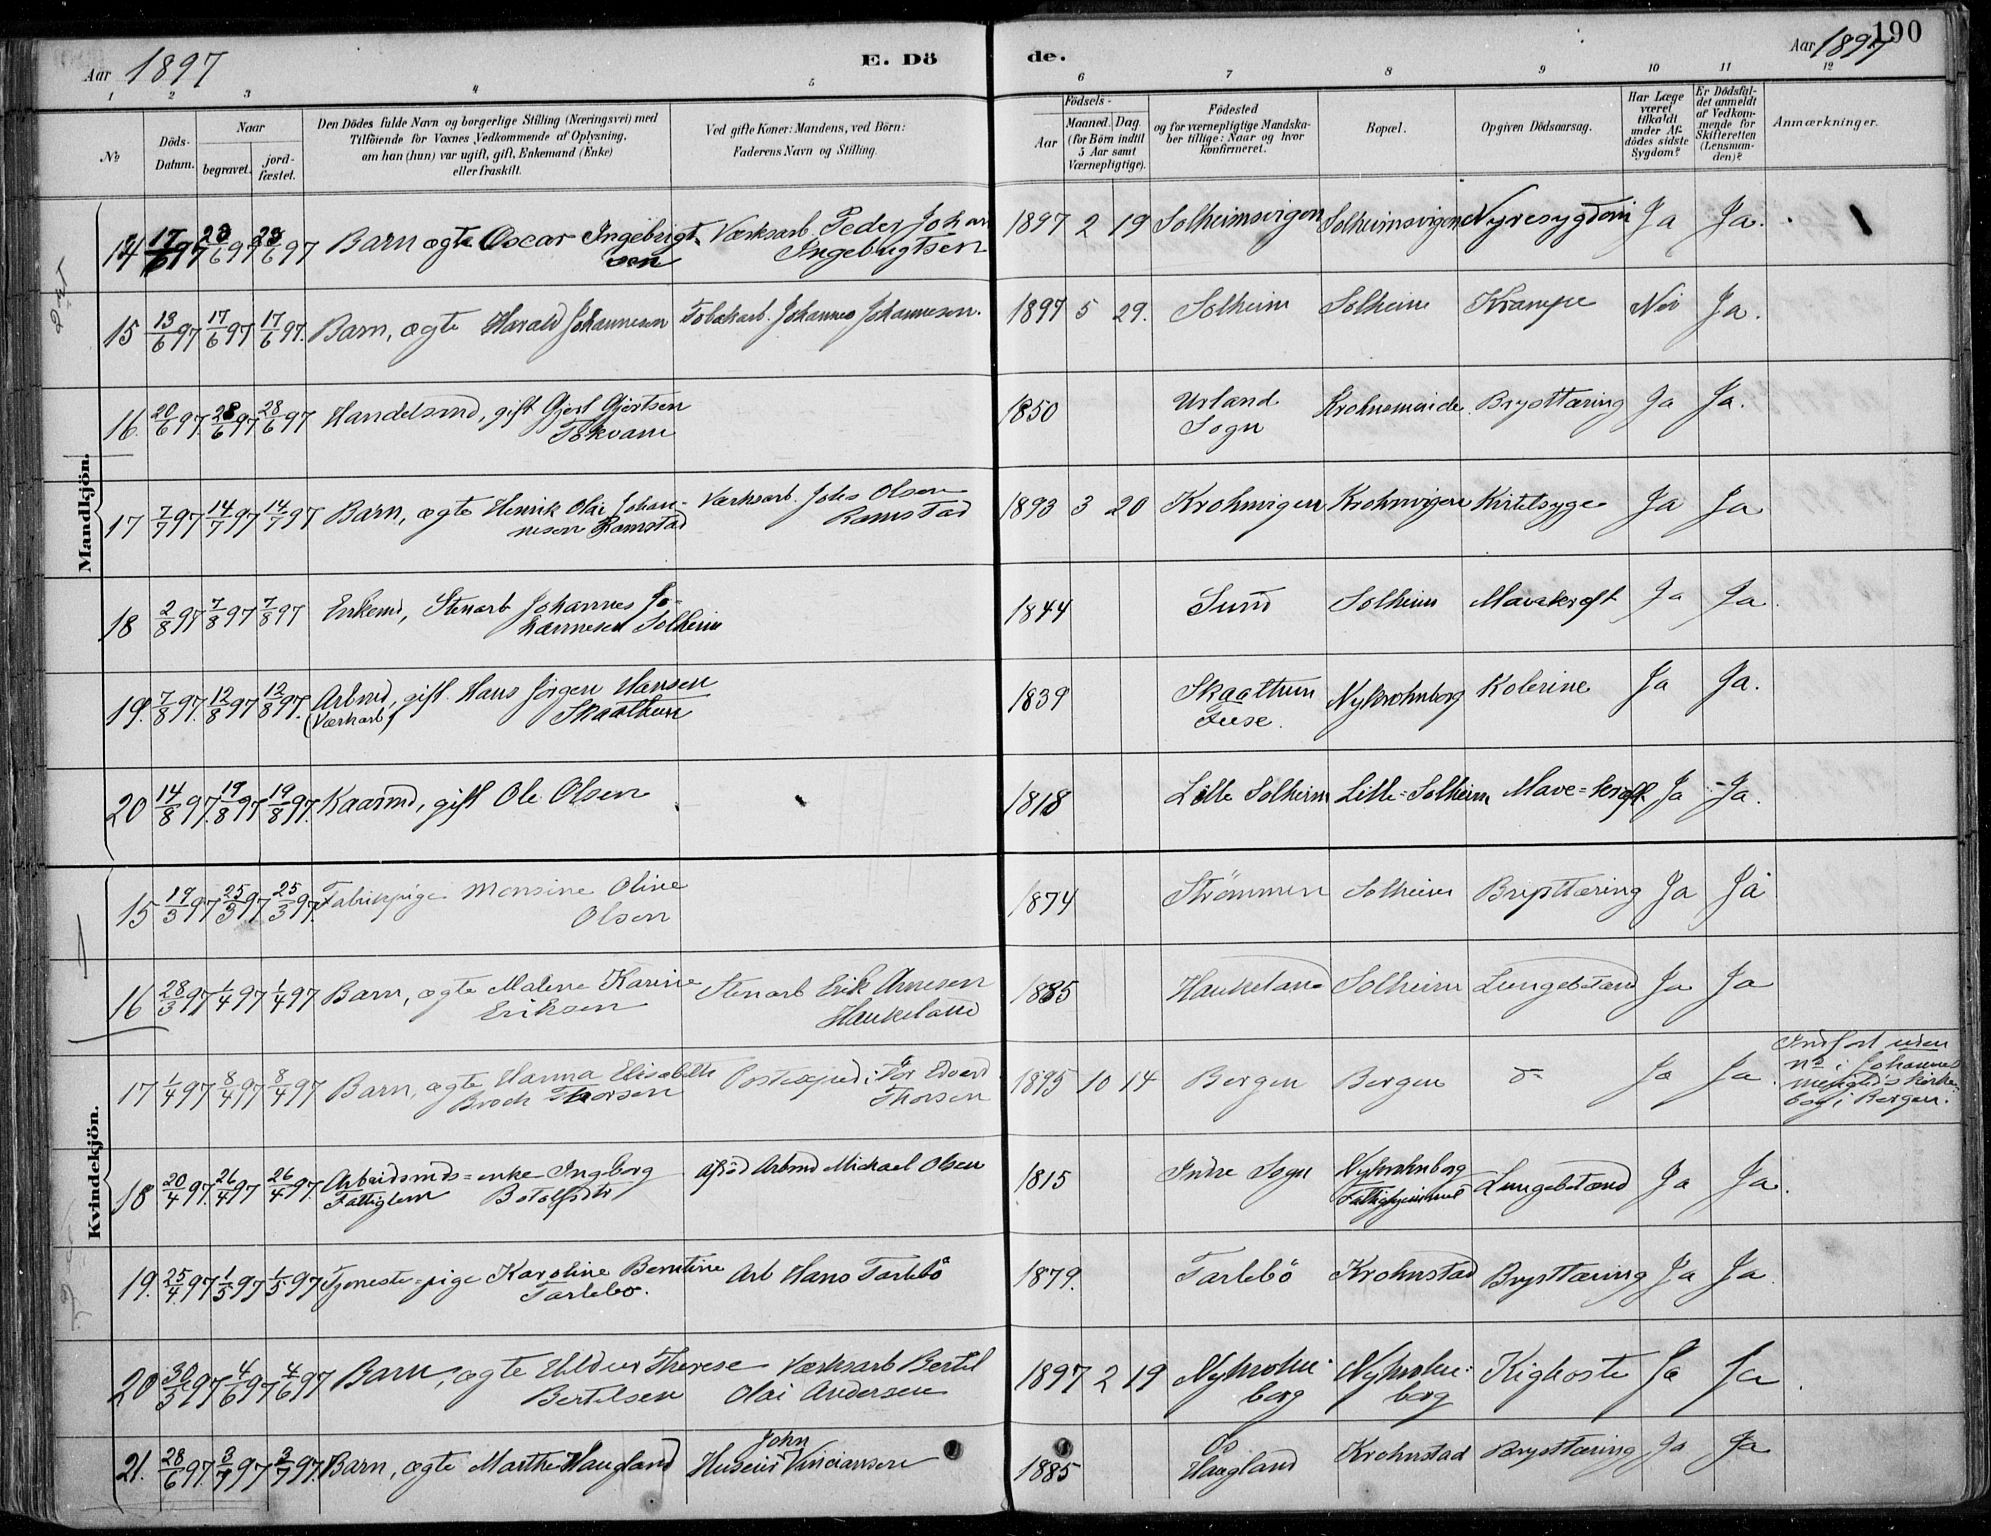 190
Aar 1897 E. Dö de. Aar 1897
1 2 3 4 5 6 7 8 9 10 11 12
No
Döds-Datum.
Naar
begravet.
jord-fæstet.
Den Dödes fulde Navn og borgerlige Stilling (Næringsvei) med
Tilföiende for Voxnes Vedkommende af Oplysning,
om han (hun) var ugift, gift, Enkemand (Enke)
eller fraskilt.
Ved gifte Koner: Mandens, ved Börn:
Faderens Navn og Stilling.
Födsels-
Aar
Maaned. Dag.
(for Börn indtil
5 Aar samt
Værnepligtige).
Födested
og for værnepligtige Mandska-
ber tillige: Naar og hvor
konfirmeret.
Bopæl.
Opgiven Dödsaarsag.
Har Læge
været
tilkaldt
under Af-
dödes sidste
Sygdom?
Er Dödsfal-
det anmeldt
af Vedkom-
mende for
Skifteretten
(Lensman-
den)?
Anmærkninger.
Mandkjön.
14 17/6 97 23/6 97 23/6 97 Barn ægte Oscar Ingebrigt- Værksarb Peder Johan 1897 2 19 Solheimsvigen Solheimsvigen Nyresygdom Ja Ja.
sen Ingebrigtsen
15 13/6 97 17/6 97 17/6 97. Barn, ægte Harald Johannesen Johannes Johannesen. 1897 5 29. Solheim Solheim Krampe Nei Ja.
16. 20/6 97. 28/6 97 28/6 97 Handelsmd, gift Gjert Gjertsen 1850 Urland Brysttæring Ja Ja.
Tokvam Sogn
17 7/7 97 14/7 97 14/7 97 Barn, ægte Henrik Olai Johan- Værksarb. Johs Olsen 1893 3 20 Krohnvigen Krohnvigen Kirtelsyge Ja Ja
nesen Ramstad Ramstad
18 2/8 97 7/8 97 7/8 97 Enkemd, Stenarb Johannes Jo- 1844 Sund Solheim Mavekræft Ja Ja.
hannesen Solheim
19. 7/8 97. 12/8 97 12/8 97. Arbmd, gift. Hans Jörgen Hansen 1839 Skaathun Nykrohnborg Kolerine Ja Ja.
(Værkarb) Skaathun Fuse.
20 14/8 97. 19/8 97 19/8 97. Kaarmd, gift Ole Olsen 1818 Lille Solheim Lille-Solheim Mave-kræft. Ja Ja.
Kvindekjön.
15 19/3 97 25/3 97 25/3 97. Fabrikpige Monsine Oline 1874 Strömmen Solheim Brysttæring Ja Ja
Olsen
16 28/3 97 1/4 97 1/4 97 Barn, ægte Malene Karine Stenarb Erik Arnesen 1885 Haukeland Solheim Lungebetænd Ja Ja
Eriksen Haukeland
17 1/4 97 8/4 97 8/4 97 Barn, ægte Hanna Elisabeth Postexped. Edvard 1895 10 14 Bergen Bergen do Ja Ja.
Broch Thorsen Thorsen
Indfört uden
No i Johannes
menigheds kirke-
bog i Bergen.
18 20/4 97. 26/4 97 26/4 97. Arbeidsmds-enke Ingborg Afdöd Arbmd Michael Olsen 1815 Indre Sogn Nykrohnborg Lungebetænd Ja Ja.
Fattiglem Botolfsdtr Fattighjemmet
19. 25/4 97 1/5 97 1/5 97 Tjeneste-pige Karoline Berntine Arb Hans Tarlebö 1879. Tarlebö Krohnstad Brysttæring Ja Ja.
Tarlebö.
20 30/5 97 4/6 97 4/6 97 Barn, ægte Hildur Therese Værksarb Bertel 1897 2 19 Nykrohn- Nykrohn- Kighoste Ja Ja.
Bertelsen Olai Andersen borg borg
21. 28/6 97. 3/7 97 3/7 97. Barn, ægte Marthe Haugland John 1885 Os Krohnstad Brysttæring Ja Ja
Huseier Haugland